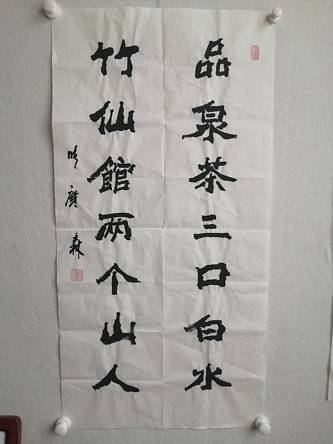 品泉茶三口白水
竹仙館两个山人